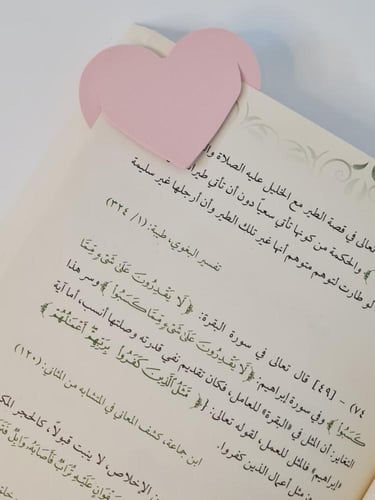 تعالى في قصة الطير مع الخليل عليه الصلاة وال
﴾ والحكمة من كونها تأتي سعياً دون أن تأتي طيرا
لو طارت لتوهم متوهم أنها غير تلك الطير وأن أرجلها غير سليمة
تفسير البغوي، طيبة: (١/ ٣٢٤)
٧٤) - [٤٩] قال تعالى في سورة البقرة: ﴿لَّا يَقْدِرُونَ عَلَىٰ شَىْءٍ مِّمَّا
كَسَبُوا﴾ وفي سورة إبراهيم: ﴿لَّا يَقْدِرُونَ مِمَّا كَسَبُوا عَلَىٰ شَىْءٍ﴾ وسر هذا
التغاير: أن المثل في «البقرة» للعامل، فكان تقديم نفي قدرته وصلتها أنسب، أما آية
«إبراهيم» فالمثل للعمل، لقوله تعالى: ﴿مَّثَلُ الَّذِينَ كَفَرُوا بِرَبِّهِمْ أَعْمَالُهُمْ﴾
مثل أعمال الذين كفروا.
ابن جماعة، كشف المعاني في المتشابه من المثاني: (١٢٠)
الإخلاص، لا ينبت قولاً، كالحجر المك
صَفْوَانٍ عَلَيْهِ تُرَابٌ فَأَصَابَهُ وَابِلٌ فَتَرَ